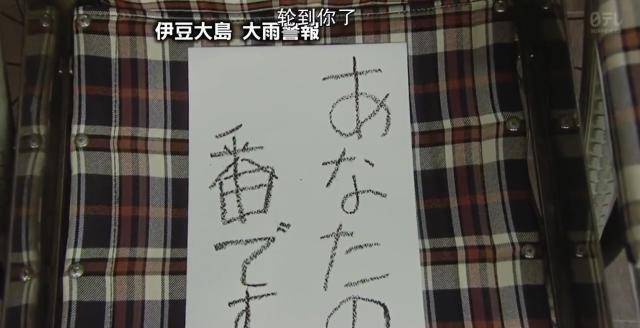 轮到你了
伊豆大島 大雨警報
日テレ
あなたの
番です